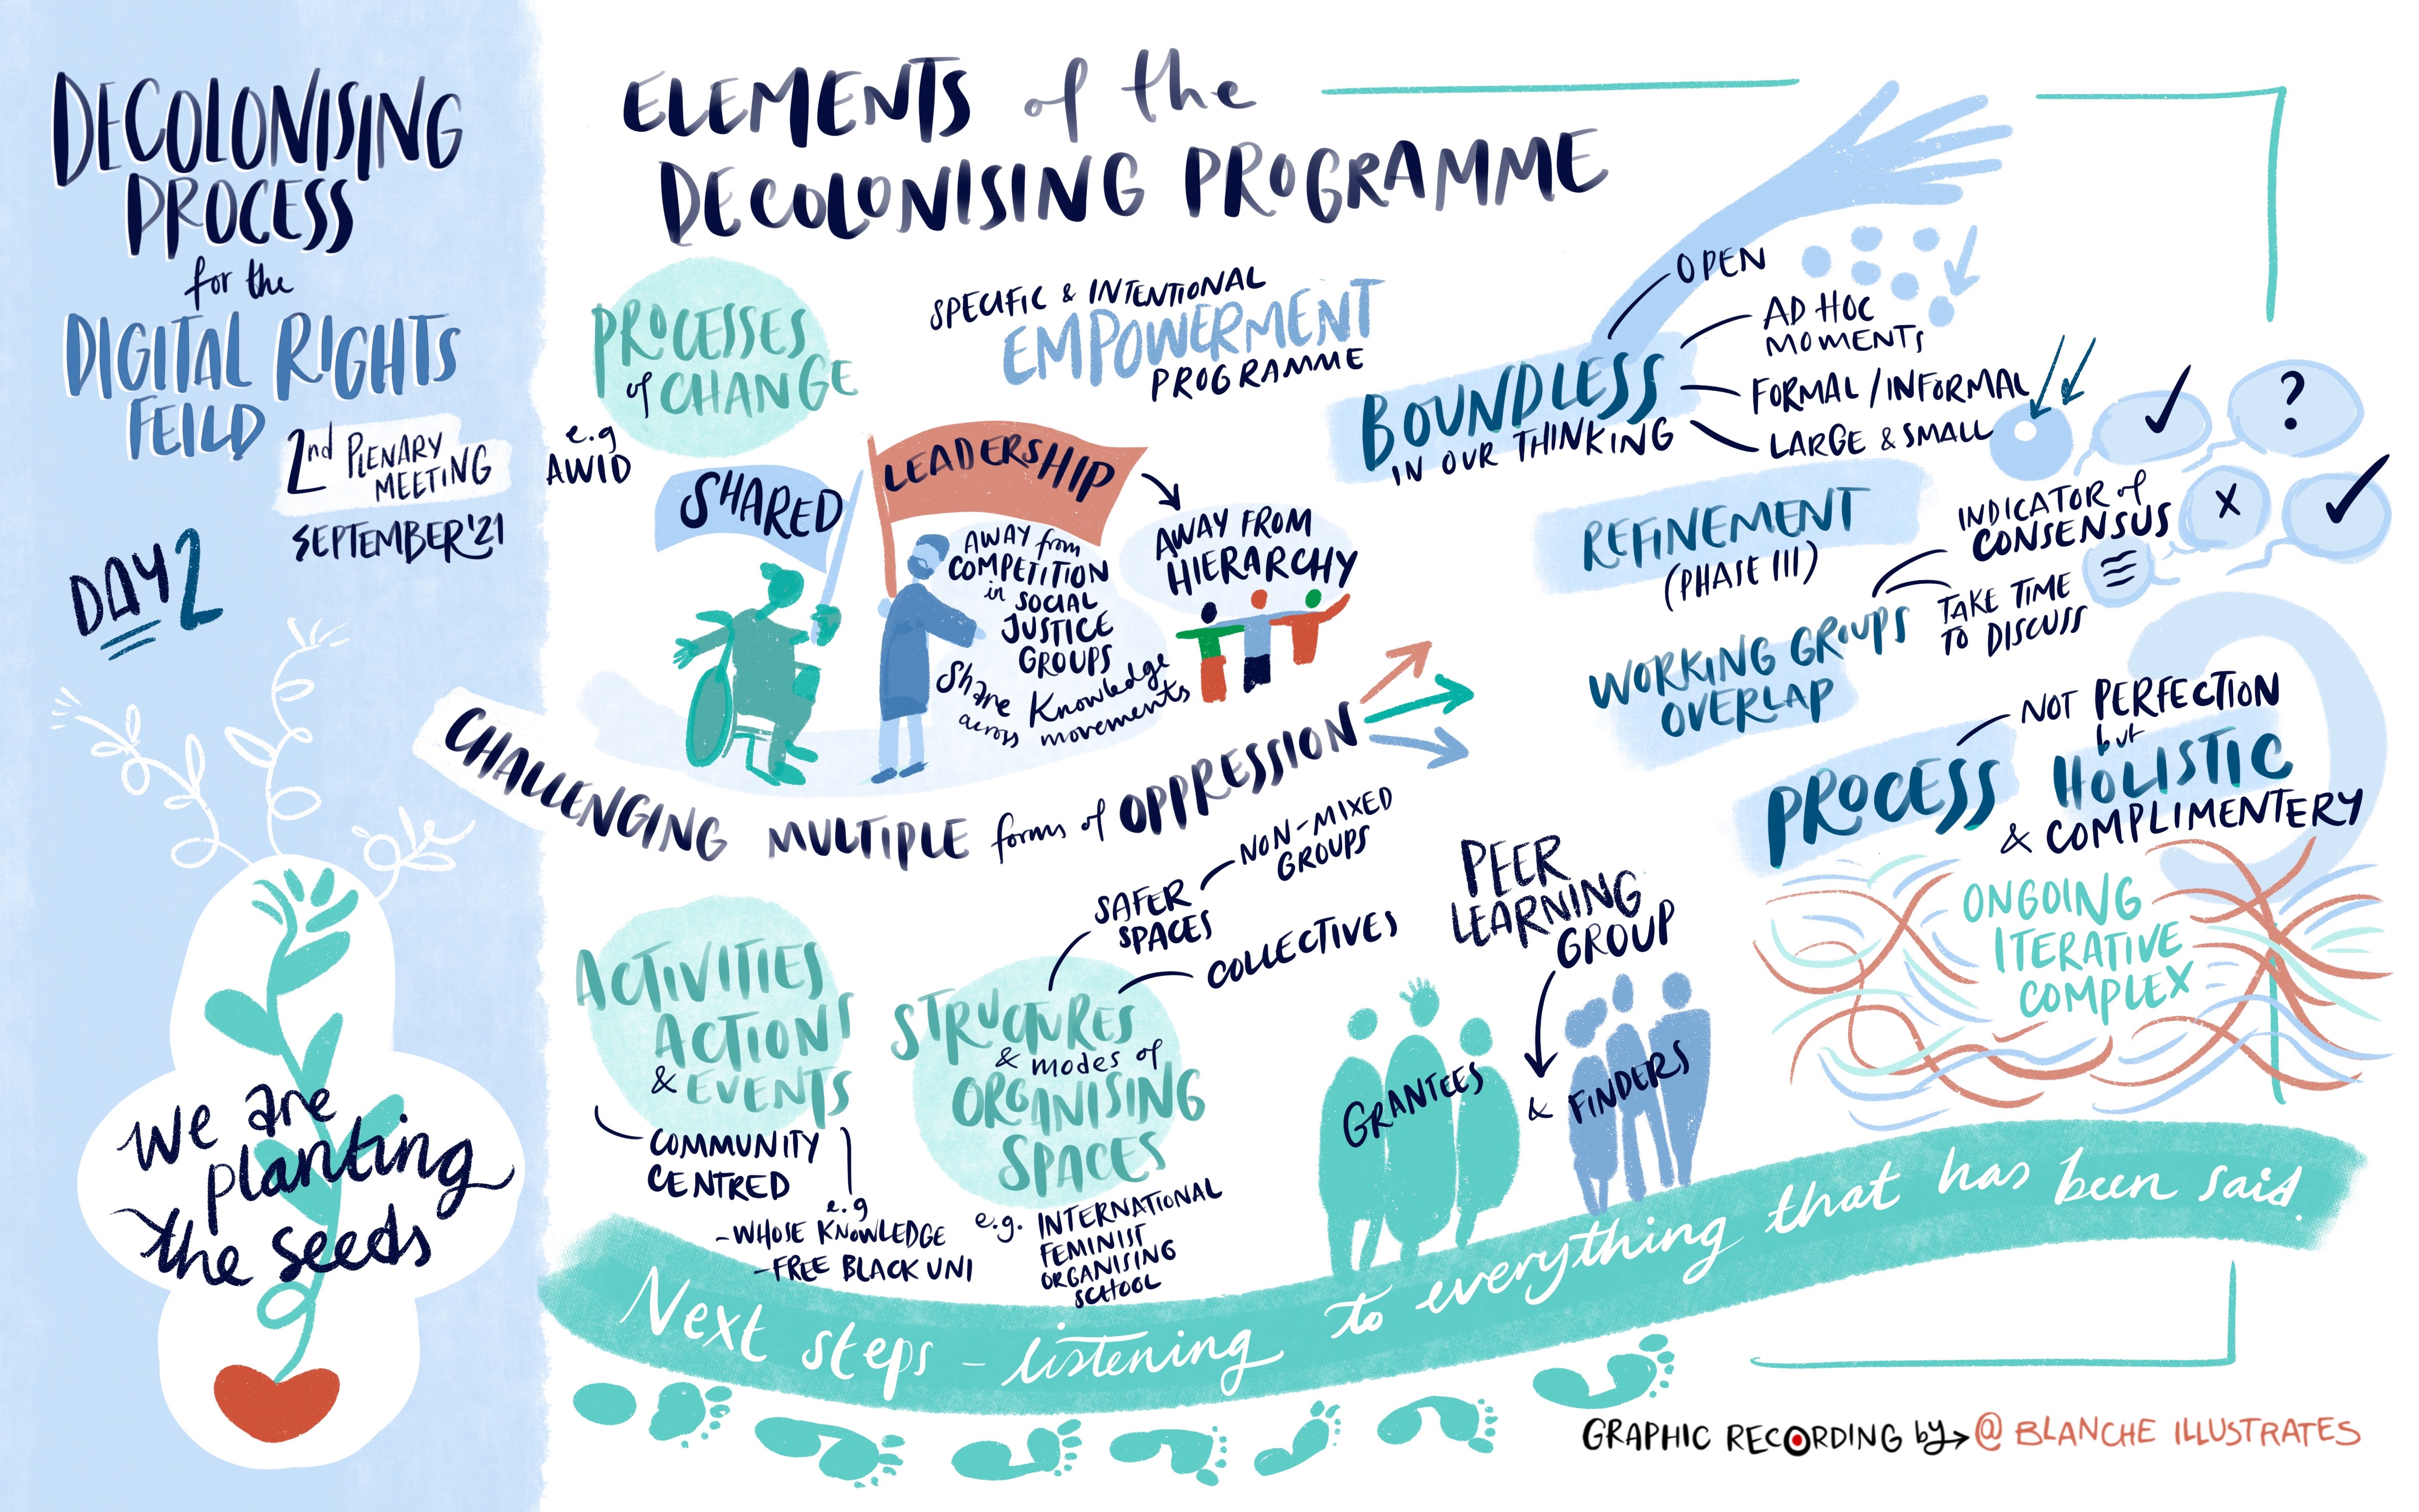 DECOLONISING
PROCESS
for the
DIGITAL RIGHTS
FEILD
2nd PLENARY
MEETING
SEPTEMBER'21
DAY 2
we are
planting
the seeds
ELEMENTS of the
DECOLONISING PROGRAMME
PROCESSES
of CHANGE
e.g
AWID
SPECIFIC & INTENTIONAL
EMPOWERMENT
PROGRAMME
SHARED
LEADERSHIP
AWAY from
COMPETITION
in SOCIAL
JUSTICE
GROUPS
Share Knowledge
across movements
AWAY FROM
HIERARCHY
CHALLENGING MULTIPLE forms of OPPRESSION
BOUNDLESS
IN OUR THINKING
OPEN
AD HOC
MOMENTS
FORMAL / INFORMAL
LARGE & SMALL
?
X
REFINEMENT
(PHASE III)
INDICATOR of
CONSENSUS
TAKE TIME
TO DISCUSS
WORKING GROUPS
OVERLAP
PROCESS
NOT PERFECTION
but
HOLISTIC
& COMPLIMENTERY
ONGOING
ITERATIVE
COMPLEX
ACTIVITIES
ACTIONS
& EVENTS
COMMUNITY
CENTRED
e.g
- WHOSE KNOWLEDGE
- FREE BLACK UNI
STRUCTURES
& modes of
ORGANISING
SPACES
SAFER
SPACES
NON-MIXED
GROUPS
COLLECTIVES
e.g. INTERNATIONAL
FEMINIST
ORGANISING
SCHOOL
PEER
LEARNING
GROUP
GRANTEES & FINDERS
Next steps - listening to everything that has been said.
GRAPHIC RECORDING by → @ BLANCHE ILLUSTRATES